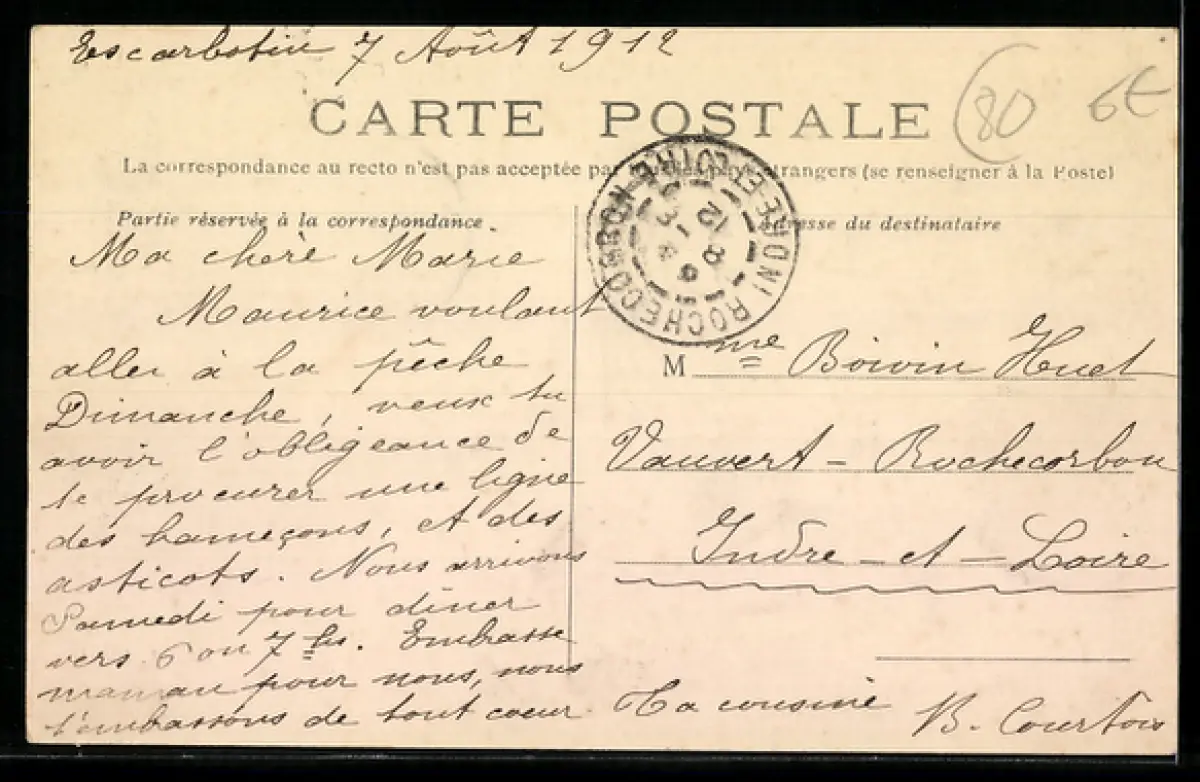 Escarbotin 7 Août 1912
CARTE POSTALE
80 6€
La correspondance au recto n'est pas acceptée par tous les pays étrangers (se renseigner à la Poste)
Partie réservée à la correspondance
Adresse du destinataire
Ma chère Marie
Maurice voulant
aller à la pêche
Dimanche, veux tu
avoir l'obligeance de
te procurer une ligne
des hameçons, et des
asticots. Nous arrivons
Samedi pour dîner
vers 6 ou 7 hs. Embrasse
maman pour nous, nous
t'embrassons de tout coeur
Ta cousine B. Courtois
ROCHECORBON
12
M me Boivin Huet
Vauvert - Rochecorbon
Indre - et - Loire